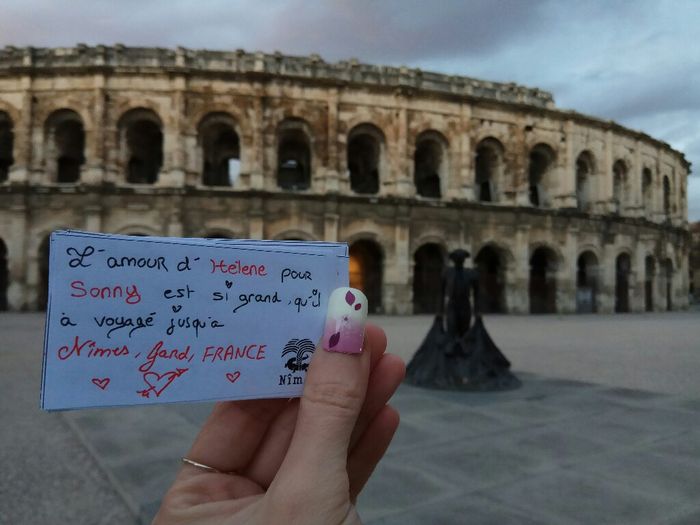 L'amour d'Hélène pour
Sonny est si grand, qu'il
à voyagé jusqu'a
Nîmes, Gard, FRANCE